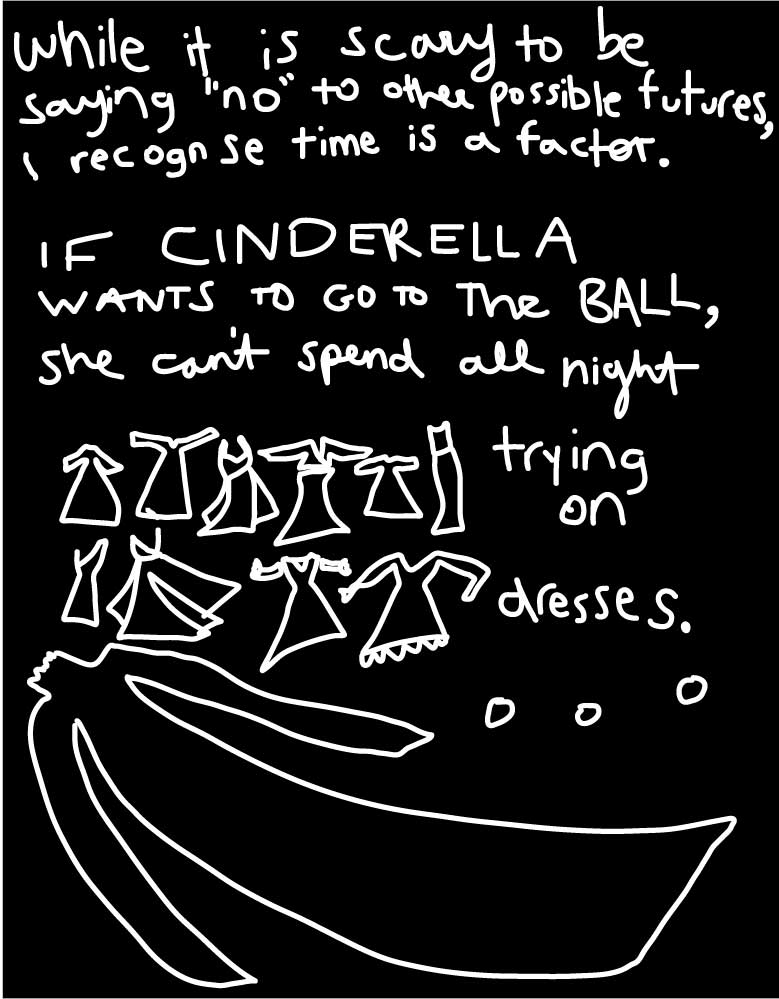 while it is scary to be
saying "no" to other possible futures,
I recognse time is a factor.
IF CINDERELLA
WANTS TO GO TO The BALL,
she can't spend all night
trying
on
dresses.